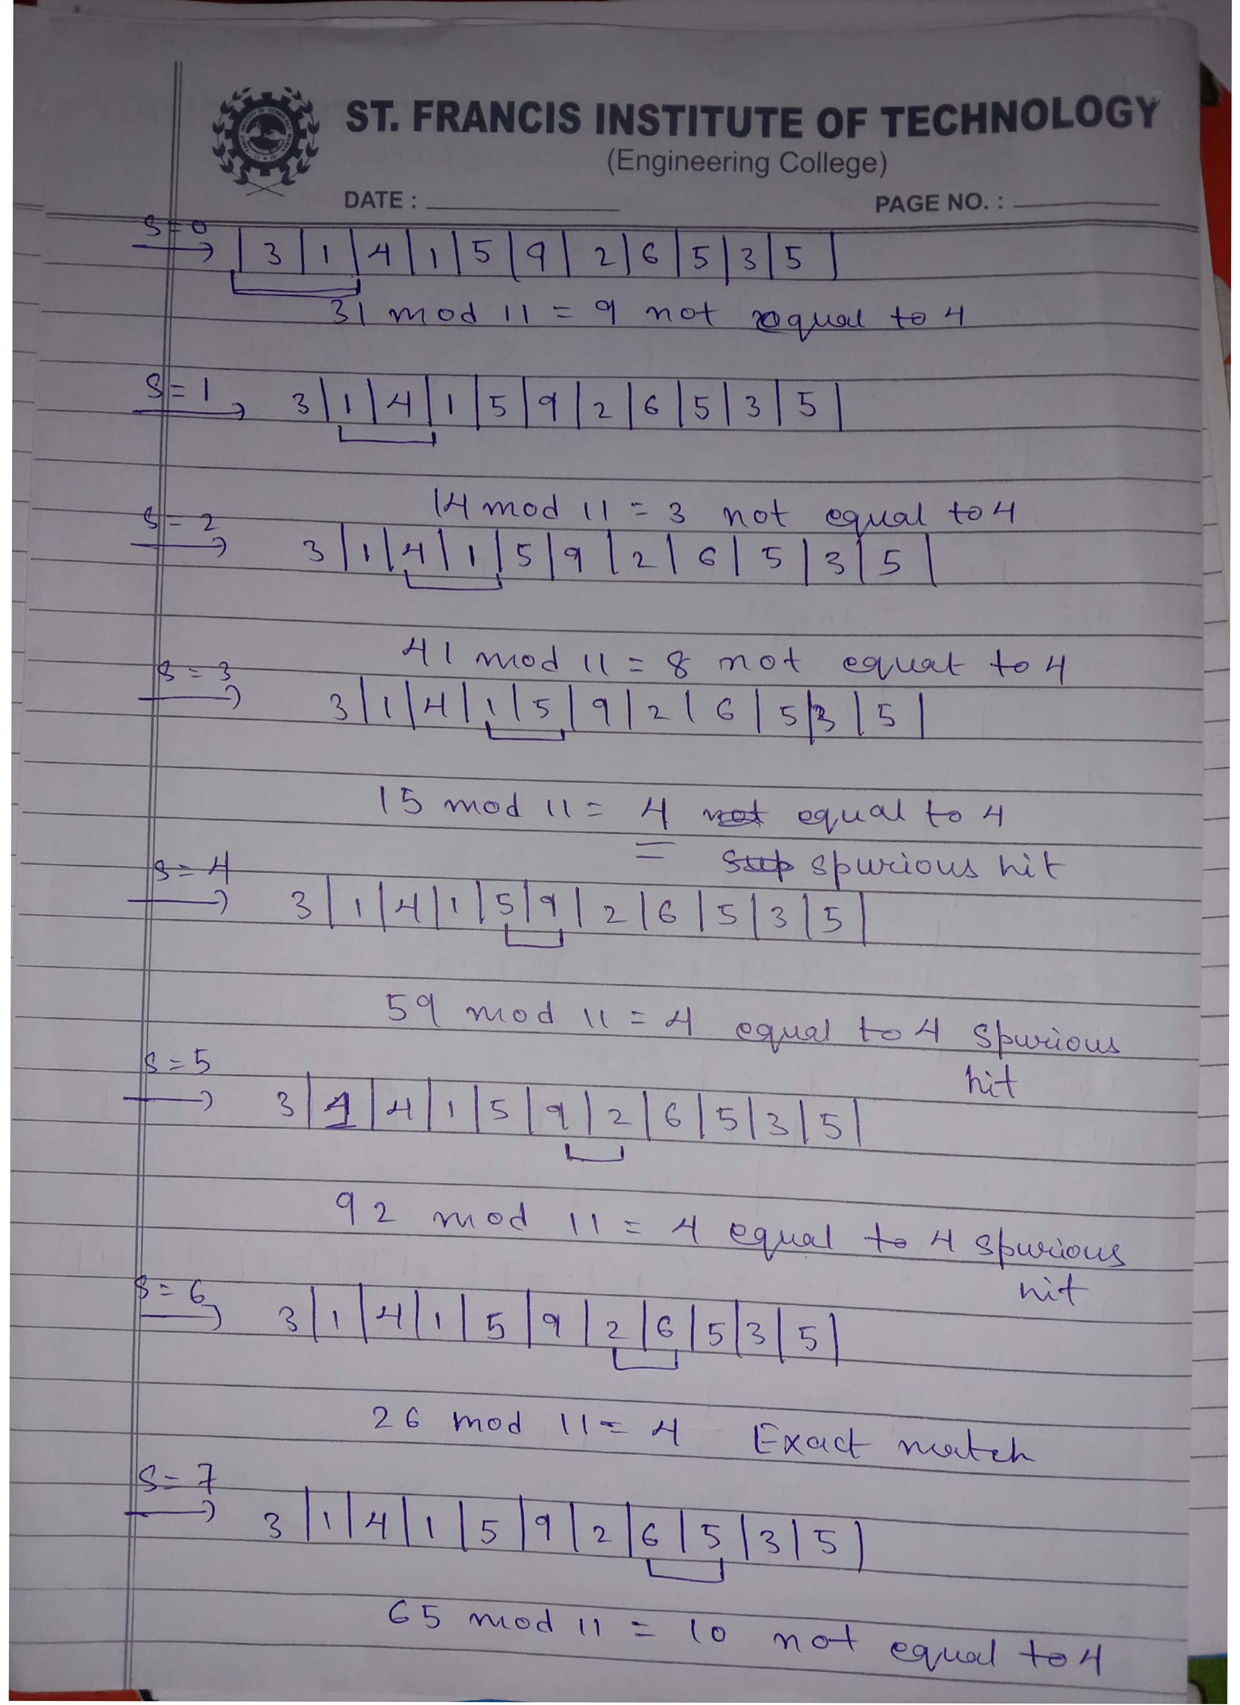 ST. FRANCIS INSTITUTE OF TECHNOLOGY
(Engineering College)
DATE : PAGE NO. :
S=0
3 | 1 | 4 | 1 | 5 | 9 | 2 | 6 | 5 | 3 | 5 |
31 mod 11 = 9 not equal to 4
S=1
3 | 1 | 4 | 1 | 5 | 9 | 2 | 6 | 5 | 3 | 5 |
14 mod 11 = 3 not equal to 4
S=2
3 | 1 | 4 | 1 | 5 | 9 | 2 | 6 | 5 | 3 | 5 |
41 mod 11 = 8 not equal to 4
S=3
3 | 1 | 4 | 1 | 5 | 9 | 2 | 6 | 5 | 3 | 5 |
15 mod 11 = 4 not equal to 4
spurious hit
S=4
3 | 1 | 4 | 1 | 5 | 9 | 2 | 6 | 5 | 3 | 5 |
59 mod 11 = 4 equal to 4 spurious
hit
S=5
3 | 1 | 4 | 1 | 5 | 9 | 2 | 6 | 5 | 3 | 5 |
92 mod 11 = 4 equal to 4 spurious
hit
S=6
3 | 1 | 4 | 1 | 5 | 9 | 2 | 6 | 5 | 3 | 5 |
26 mod 11 = 4 Exact match
S=7
3 | 1 | 4 | 1 | 5 | 9 | 2 | 6 | 5 | 3 | 5 |
65 mod 11 = 10 not equal to 4